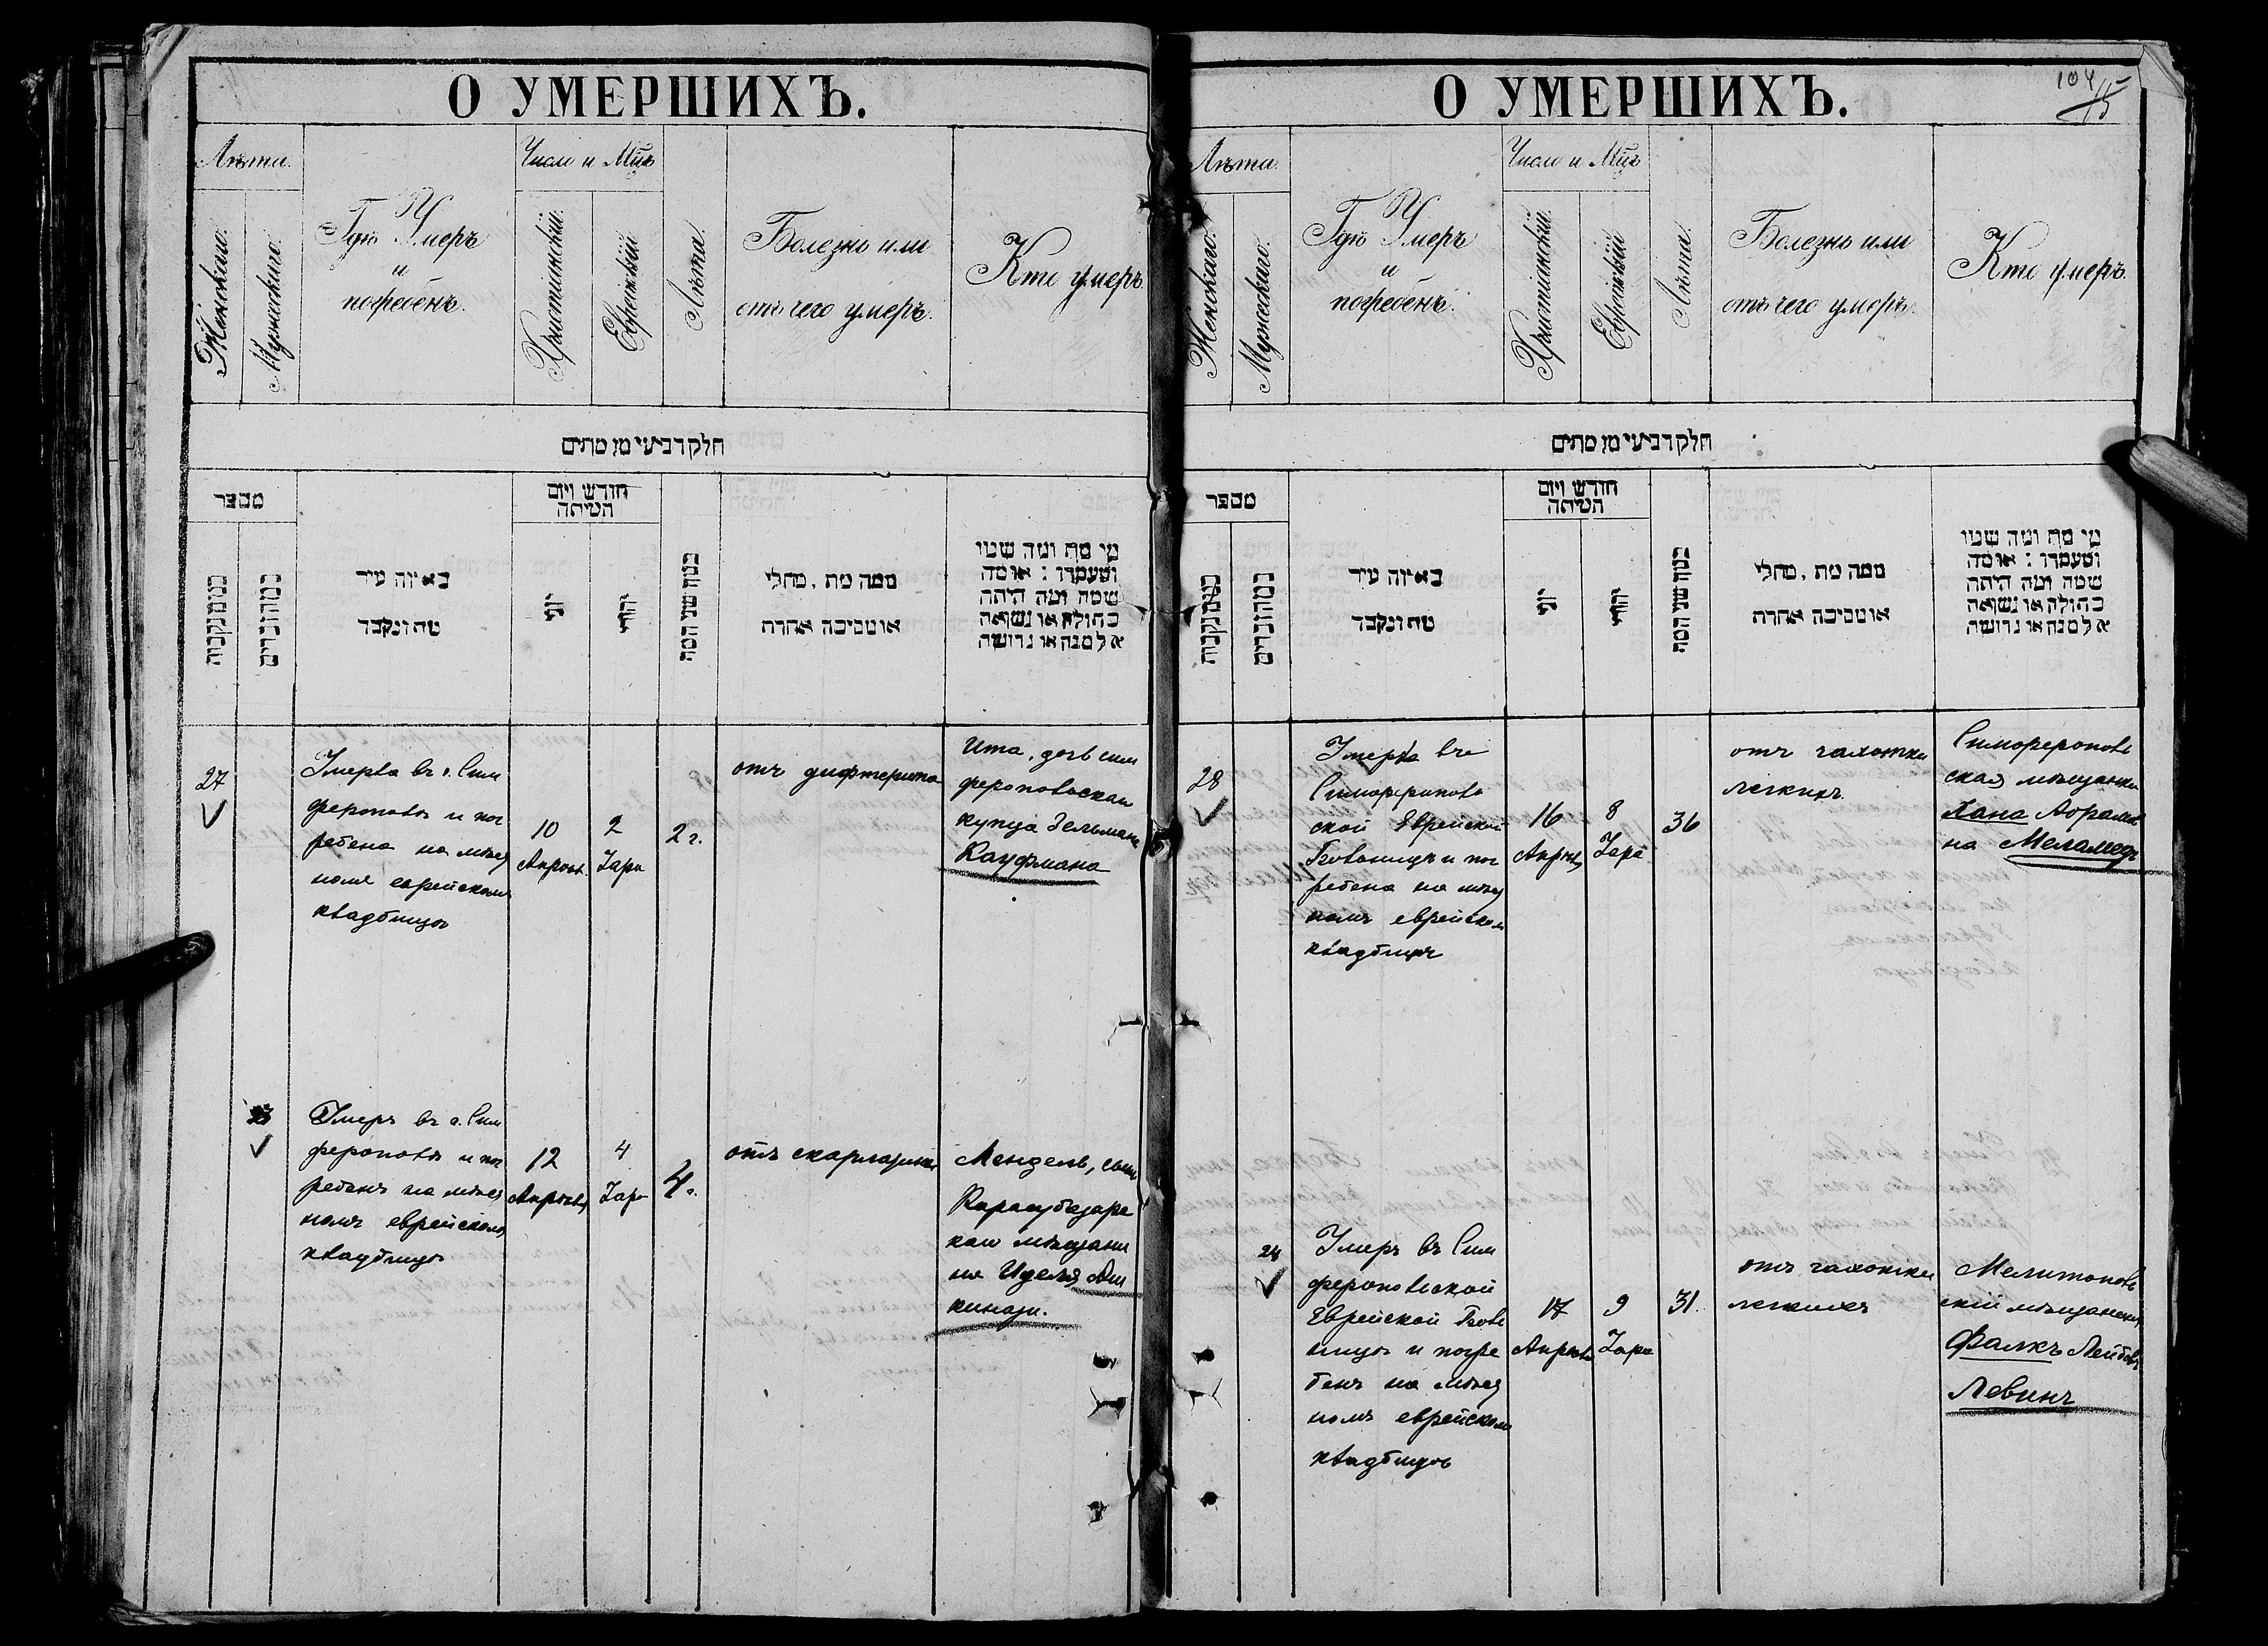 О УМЕРШИХЪ.
Лѣта.
Женскаго.
Мужескаго.
Гдѣ Умеръ
и
погребенъ.
Число и Мцъ
Христіанскій.
Еврейскій
Лѣта.
Болезнь или
отъ чего умеръ.
Кто умеръ.
חלק רביעי מן מתים
מספר
באיזה עיר
מת ונקבר
חודש ויום
המיתה
יוני
יהודי
ממה מת, מחלי
או מסיבה אחרת
מי מת ומה שמו
ומעמדו: או מה
שמה ומה היתה
בתולה או נשואה
אלמנה או גרושה
27
Умерla въ г. Сим
ферополѣ и пог
ребена на мѣст
номъ еврейскомъ
кладбищѣ
10
Апрѣля
2
Іара
2 г.
отъ дифтерита
Ита, дочь сим
феропольскаго
купца Зельмана
Кауфмана
23
Умеръ въ г. Сим
ферополѣ и пог
ребенъ на мѣст
номъ еврейскомъ
кладбищѣ
12
Апрѣля
4
Іара
4 г.
отъ скарлатины
Мендель, сынъ
Карасубазарс
каго мѣщани
на Иделя Аш
кинази.
104
15
О УМЕРШИХЪ.
Лѣта.
Женскаго.
Мужескаго.
Гдѣ Умеръ
и
погребенъ.
Число и Мцъ
Христіанскій.
Еврейскій
Лѣта.
Болезнь или
отъ чего умеръ.
Кто умеръ.
חלק רביעי מן מתים
מספר
באיזה עיר
מת ונקבר
חודש ויום
המיתה
יוני
יהודי
ממה מת, מחלי
או מסיבה אחרת
מי מת ומה שמו
ומעמדו: או מה
שמה ומה היתה
בתולה או נשואה
אלמנה או גרושה
28
Умерла въ
Симферополь
ской Еврейской
Больницѣ и пог
ребена на мѣст
номъ еврейском
кладбищѣ
16
Апрѣля
8
Іара
36
отъ чахотки
легкихъ.
Симферополь
ская мѣщанка
Хана Абрамов
на Меламедъ
24
Умеръ въ Сим
феропольской
Еврейской Боль
ницѣ и погре
бенъ на мѣст
номъ еврейскомъ
кладбищѣ
17
Апрѣля
9
Іара
31.
отъ чахотки
легкихъ
Мелитополь
скій мѣщанинъ
Фалкъ Лейбовъ
Левинъ